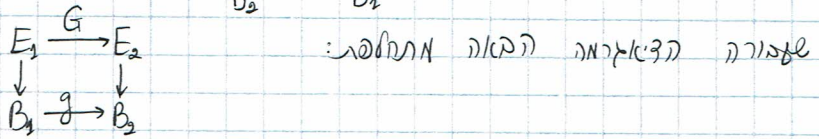 שעבורה הדיאגרמה הבאה מתחלפת:
E₁ G E₂
B₁ g B₂